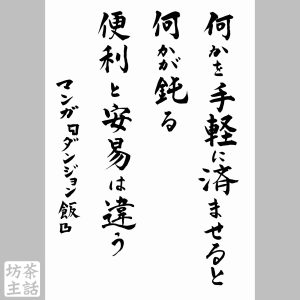 何かを手軽に済ませると
何かが鈍る
便利と安易は違う
マンガ『ダンジョン飯』
茶話
坊主